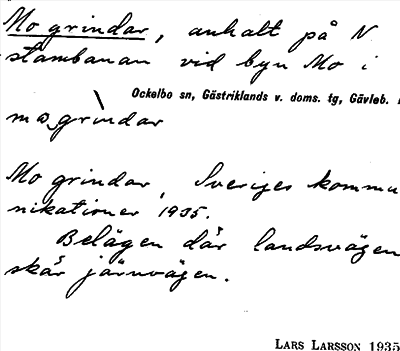 Mo grindar, anhalt på N
stambanan vid byn Mo i
Ockelbo sn, Gästriklands v. doms. tg, Gävleb.
mo grìndar
Mo grindar, Sveriges kommu
nikationer 1935.
Belägen där landsvägen
skär järnvägen.
LARS LARSSON 1935